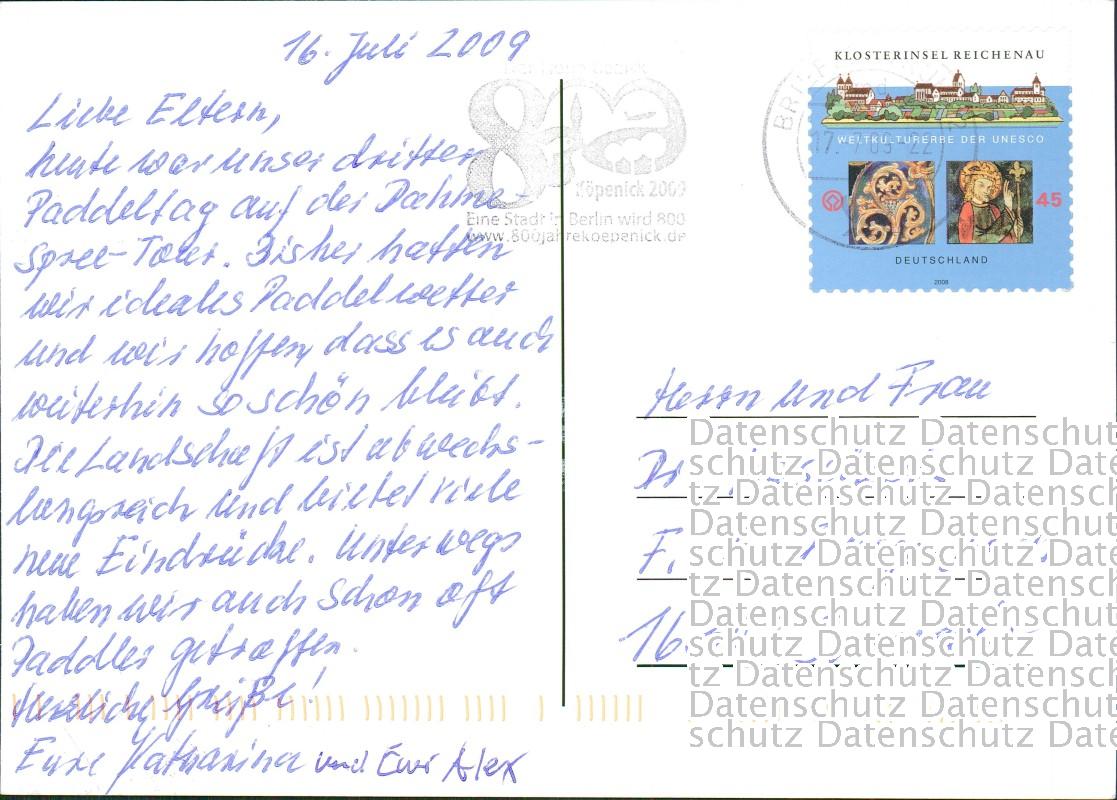 16. Juli 2009
Liebe Eltern,
heute war unser dritter
Paddeltag auf der Dahme-
Spree-Tour. Bisher hatten
wir ideales Paddelwetter
und wir hoffen, dass es auch
weiterhin so schön bleibt.
Die Landschaft ist abwechs-
lungsreich und bietet viele
neue Eindrücke. Unterwegs
haben wir auch schon oft
Paddler getroffen.
Herzliche Grüße!
Eure Katharina und Euer Alex
800
Köpenick 2009
Eine Stadt in Berlin wird 800
www.800jahrekoepenick.de
KLOSTERINSEL REICHENAU
WELTKULTURERBE DER UNESCO
45
DEUTSCHLAND
2008
BRIEF
17. 09-22
Herrn und Frau
Dr.
F.
16
Datenschutz Datenschut
schutz Datenschutz Date
tz Datenschutz Datensch
Datenschutz Datenschut
schutz Datenschutz Date
tz Datenschutz Datensch
Datenschutz Datenschut
schutz Datenschutz Date
tz Datenschutz Datensch
Datenschutz Datenschut
schutz Datenschutz Date